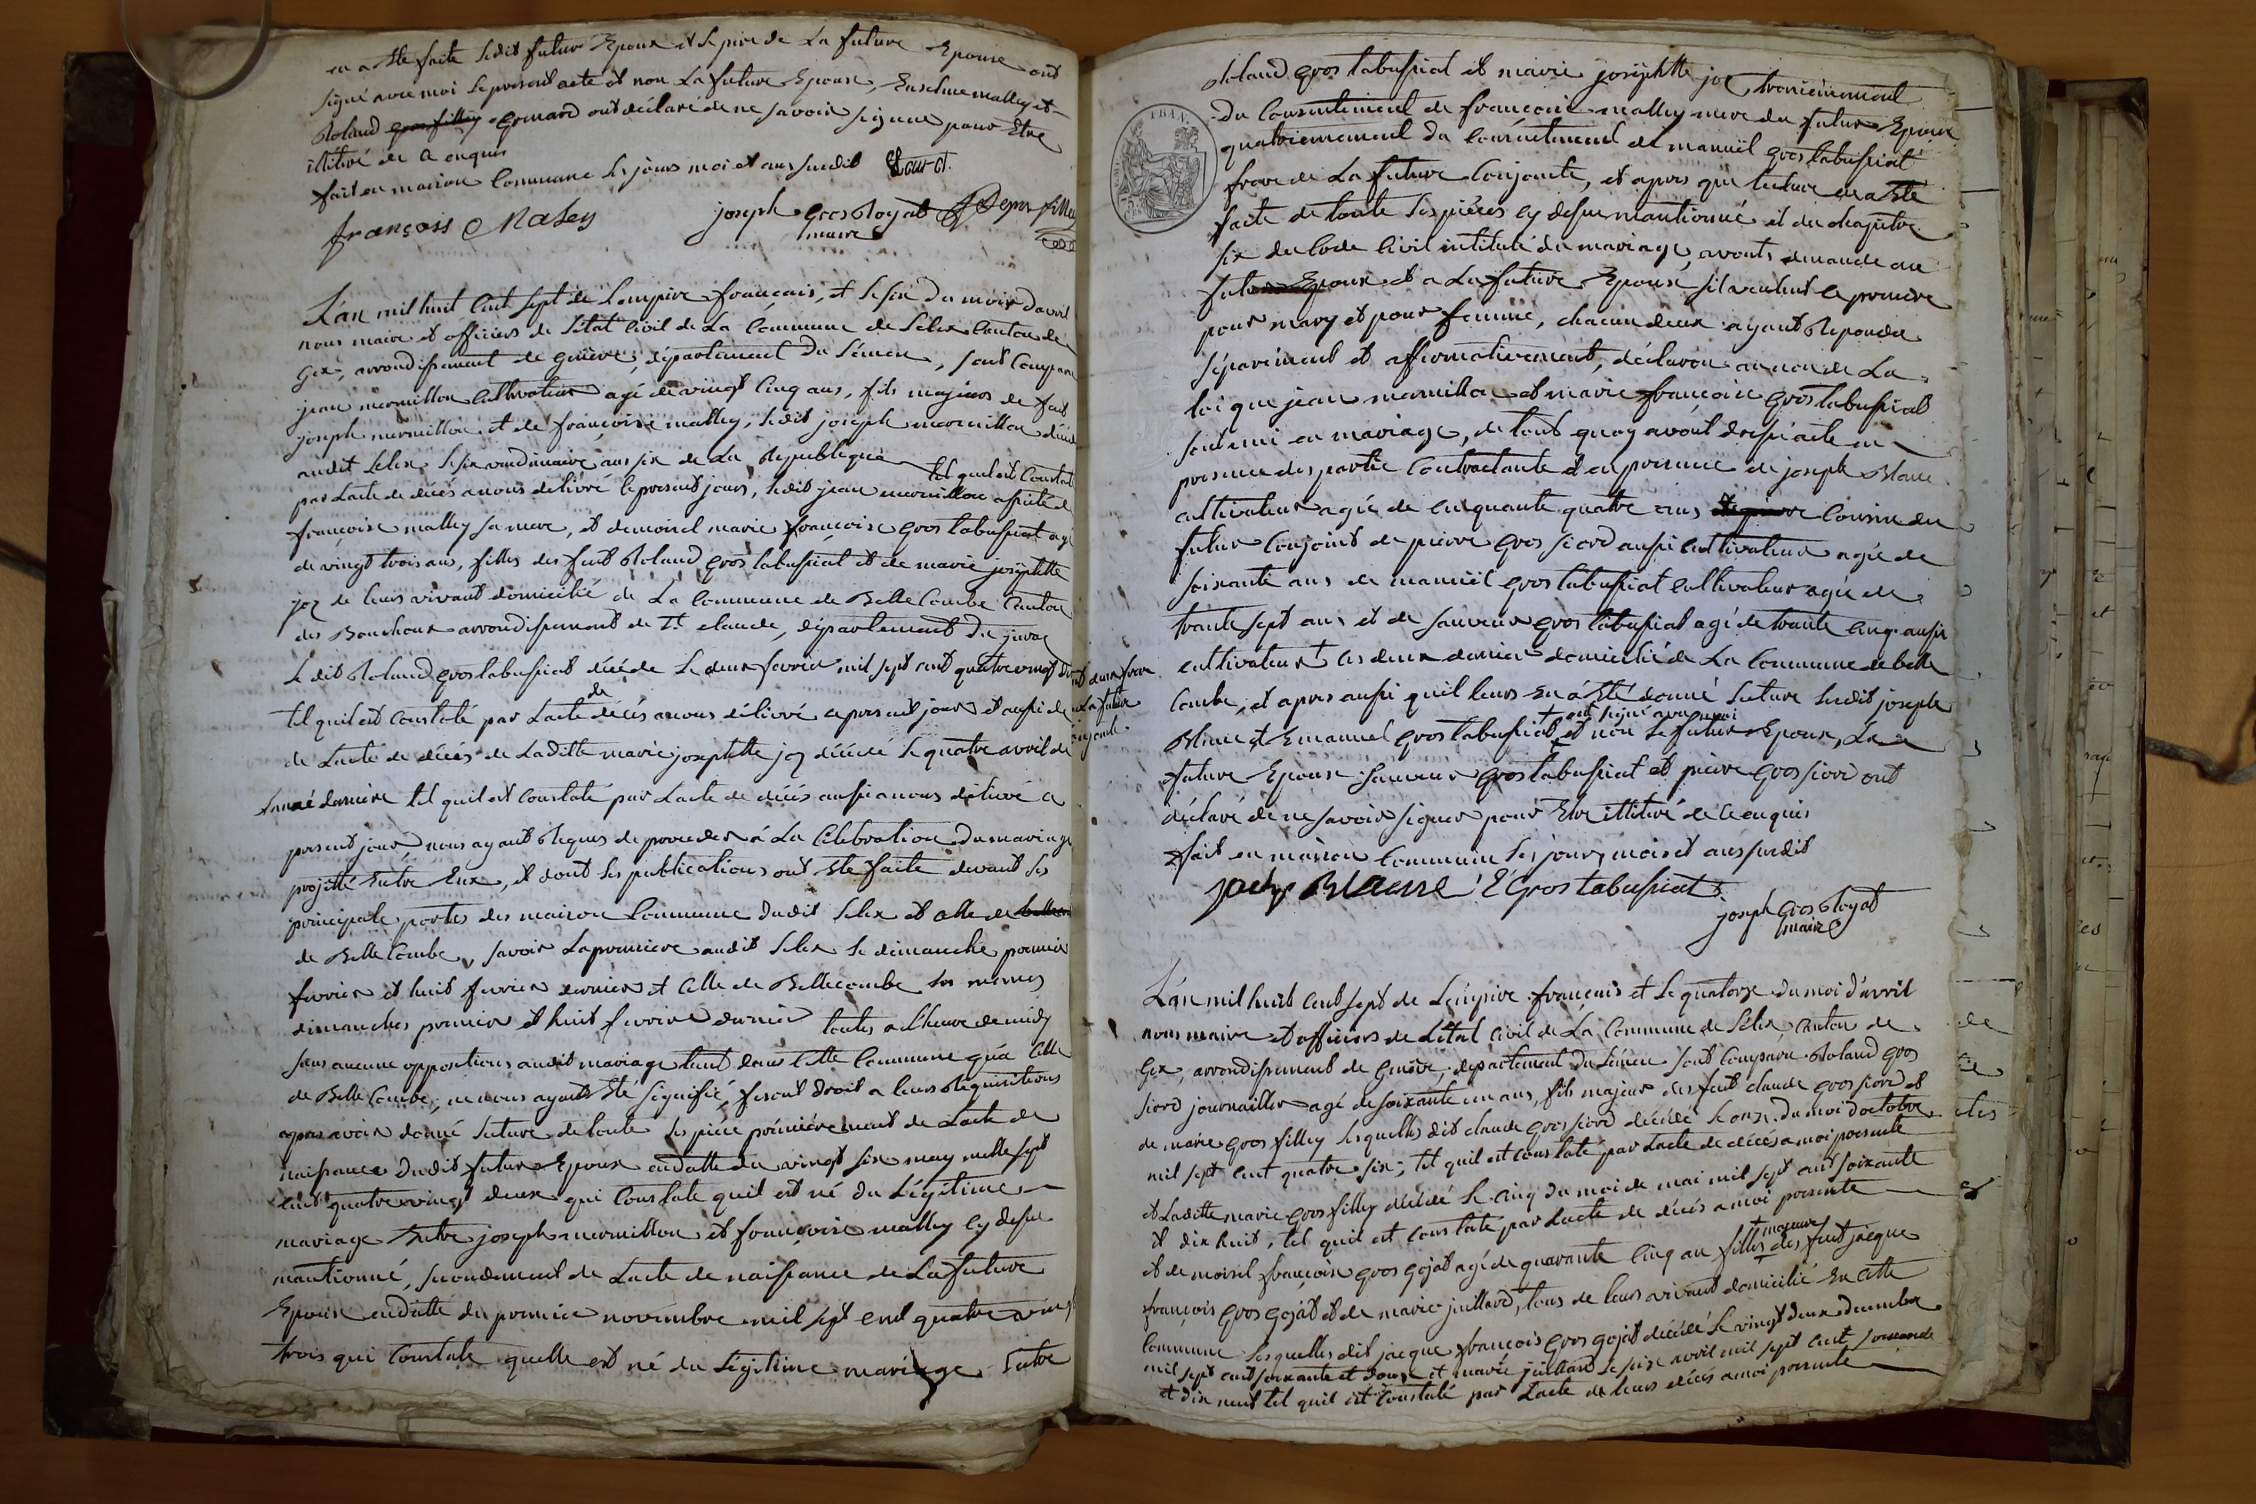 en a Ete faite Ledit futur Epoux et Le pere de La future Epouse ont
signé avec moi Le present acte et non La future Epouse, Enselme malley et
Roland gros filley gomard ont déclaré de ne savoir signer pour Etre
illitiré de ce enquis
fait en maison Commune Les jours moi et ans susdit
françois Maley
joseph gros Royat
maire
L'an mil huit Cent sept de L'empire francais, et Le six du mois d'avril
nous maire et officiers de L'état Civil de La Commune de Lelex Canton de
Gex, arrondissement de genève, département du Léman, sont Comparu
jean mermillon Cultivateur agé de vingt Cinq ans, fils majeur de feut
joseph mermillon et de françoise malley, Ledit joseph mermillon décédé
audit Lelex Le six vendimaire ans six de La Republique tel quil est Constaté
par L'acte de décés a nous delivré le present jours, Ledit jean mermillon assisté de
françoise malley sa mere, et demoisel marie françoise gros tabussiat agé
de vingt trois ans, filles des feut Roland gros tabussiat et de marie josephtte
joz de leurs vivant domicilié de La Commune de Belle Combe Canton
des Bouchoux arrondissement de St Claude, département du jura
Le dit Roland gros tabussiat décéde Le deux fevrier mil sept cent quatre vingt
tel quil est Constaté par L'acte de décés a nous délivré ce present jour et aussi de
de L'acte de décés de Laditte marie josephtte joz décédé Le quatre avril de
L'année derniere tel quil est Constaté par L'acte de décés aussi a nous délivré ce
present jour, nous ayant Requis de proceder á La Célébration du mariage
projétté Entre Eux, et dont Les publications ont Ete faite devant Les
principale portes des maison Commune dudit Lelex et celle de
de Belle Combe, savoir La premiere audit Lelex Le dimanche premier
fevrier et huit fevrier dernier et Celle de Bellecombe Les mêmes
dimanches premier et huit fevrier dernier toutes a L'heure de midy
sans aucune oppositions audit mariage tant dans Cette Commune qu'a Celle
de Belle Combe, ne nous ayant Eté signifié, fesant droit a leurs Réquisitions
apres avoir donné Lecture de toute Les piéce prémiérement de L'acte de
naissance dudit futur Epoux en datte du vingt six may mille sept
Cent quatre vingt deux qui Constate quil est né du Légitime
mariage Entre joseph mermillon et françoise malley cy dessu
mantionné, secondement de L'acte de naissance de La future
Epouse en datte du premier novembre mil sept cent quatre vingt
trois qui Constate quelle est né du Légitime mariage Entre
Roland gros tabussiat et marie josephtte joz troisiémement
du Consentement de françoise malley mere du futur Epoux
quatriemement du Consentement de manuël gros tabussiat
frere de La future Conjointe, et apres que Lecture en a Eté
faite de toute Les piéces cy dessu mantionné et du chapitre
six du Code Civil intitulé du mariage, avons demandé au
futur Epoux et a La future Epouse sil veulent ce prendre
pour mary et pour femme, chacun deux ayant Repondu
séparément et affirmativement, déclaron au nom de La
loi que jean mermillon et marie françoise gros tabussiat
sont uni en mariage, de tout quoy avont dressé acte en
presence des partie Contractante et en presence de joseph Blanc
cultivateur agée de Cinquante quatre ans Cousin du
futur Conjoint de pierre gros siord aussi cultivateur agée de
soixante ans de manuël gros tabussiat cultivateur agée de
trante sept ans et de sauveur gros tabussiat agé de trante cinq aussi
cultivateur Les deux dernier domicilié de La Commune de belle
Combe, et apres aussi quil leurs En á Eté donné Lecture Ledit joseph
Blanc et Emanuel gros tabussiat ont signé avec moi et non Le futur Epoux, La
future Epouse sauveur gros tabussiat et pierre gros siord ont
déclaré de ne savoir signer pour Etre illitiré de ce enquis
fait en maison Commune Les jours, mois et ans susdit
Blanc E Gros tabussiat
joseph Gros Royat
maire
L'an mil huit Cent sept de L'émpire français et Le quatorze du moi d'avril
nous maire et officiers de L'état Civil de La Commune de Lélex Canton de
Gex, arrondissement de Genève, département du Léman sont Comparu Roland gros
siord journaillier agé de soixante un ans, fils majeur des feut claude gros siord et
de marie gros filley Lesquelles dit claude gros siord décédé Le onze du moi d'octobre
mil sept cent quatre six, tel quil est constaté par L'acte de décés a moi presenté
et Laditte marie gros filley décédé Le cinq du moi de mai mil sept cent soixante
et dix huit, tel quil est Constaté par L'acte de décés a moi presenté
et demoisel françoise gros gojat agé de quarante Cinq an filles majeure des feut jacque
françois gros gojat et de marie juillard, tous de leurs vivant domicilié En Cette
Commune Lesquelles dit jacque françois gros gojat décédé Le vingt deux decembre
mil sept cent soixante et douze et marie juillard Le six avril mil sept cent soixante
et dix neuf tel quil est Constaté par L'acte de leurs décés a moi presenté